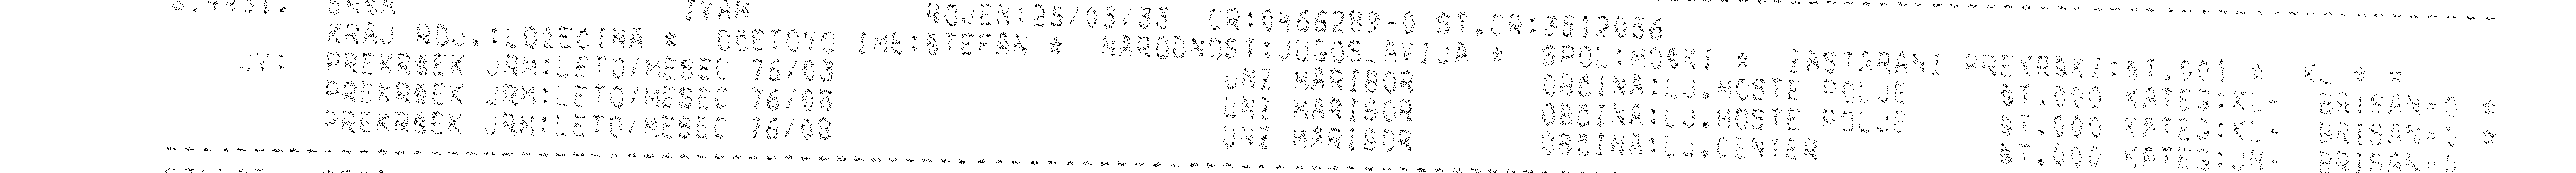 874431. SRŠA IVAN ROJEN:25/03/33 CR:0466289-0 ŠT.CR:3512056
KRAJ ROJ.:LOŽEČINA * OČETOVO IME:ŠTEFAN * NARODNOST:JUGOSLAVIJA * SPOL:MOŠKI * ZASTARANI PREKRŠKI:ŠT.001 * KL * *
JV: PREKRŠEK JRM:LETO/MESEC 76/03 UNZ MARIBOR OBČINA:LJ.MOSTE POLJE ŠT.000 KATEG:KL- BRISAN=0 *
PREKRŠEK JRM:LETO/MESEC 76/08 UNZ MARIBOR OBČINA:LJ.MOSTE POLJE ŠT.000 KATEG:KL- BRISAN= *
PREKRŠEK JRM:LETO/MESEC 76/08 UNZ MARIBOR OBČINA:LJ.CENTER ŠT.000 KATEG:JN- BRISAN=0